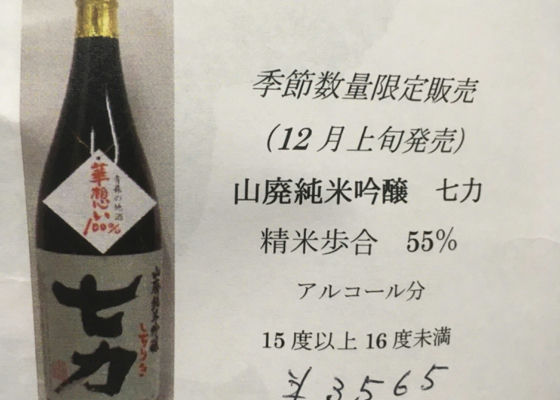 季節数量限定販売
(12月上旬発売)
山廃純米吟醸 七力
精米歩合 55%
アルコール分
15度以上16度未満
¥3565
青森の地酒
華想い
100%
山廃純米吟醸
しちりき
七力